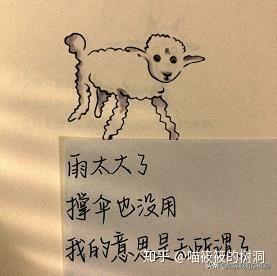 雨太大了
撑伞也没用
我的意思是无所谓了
知乎 @喵筱筱的树洞